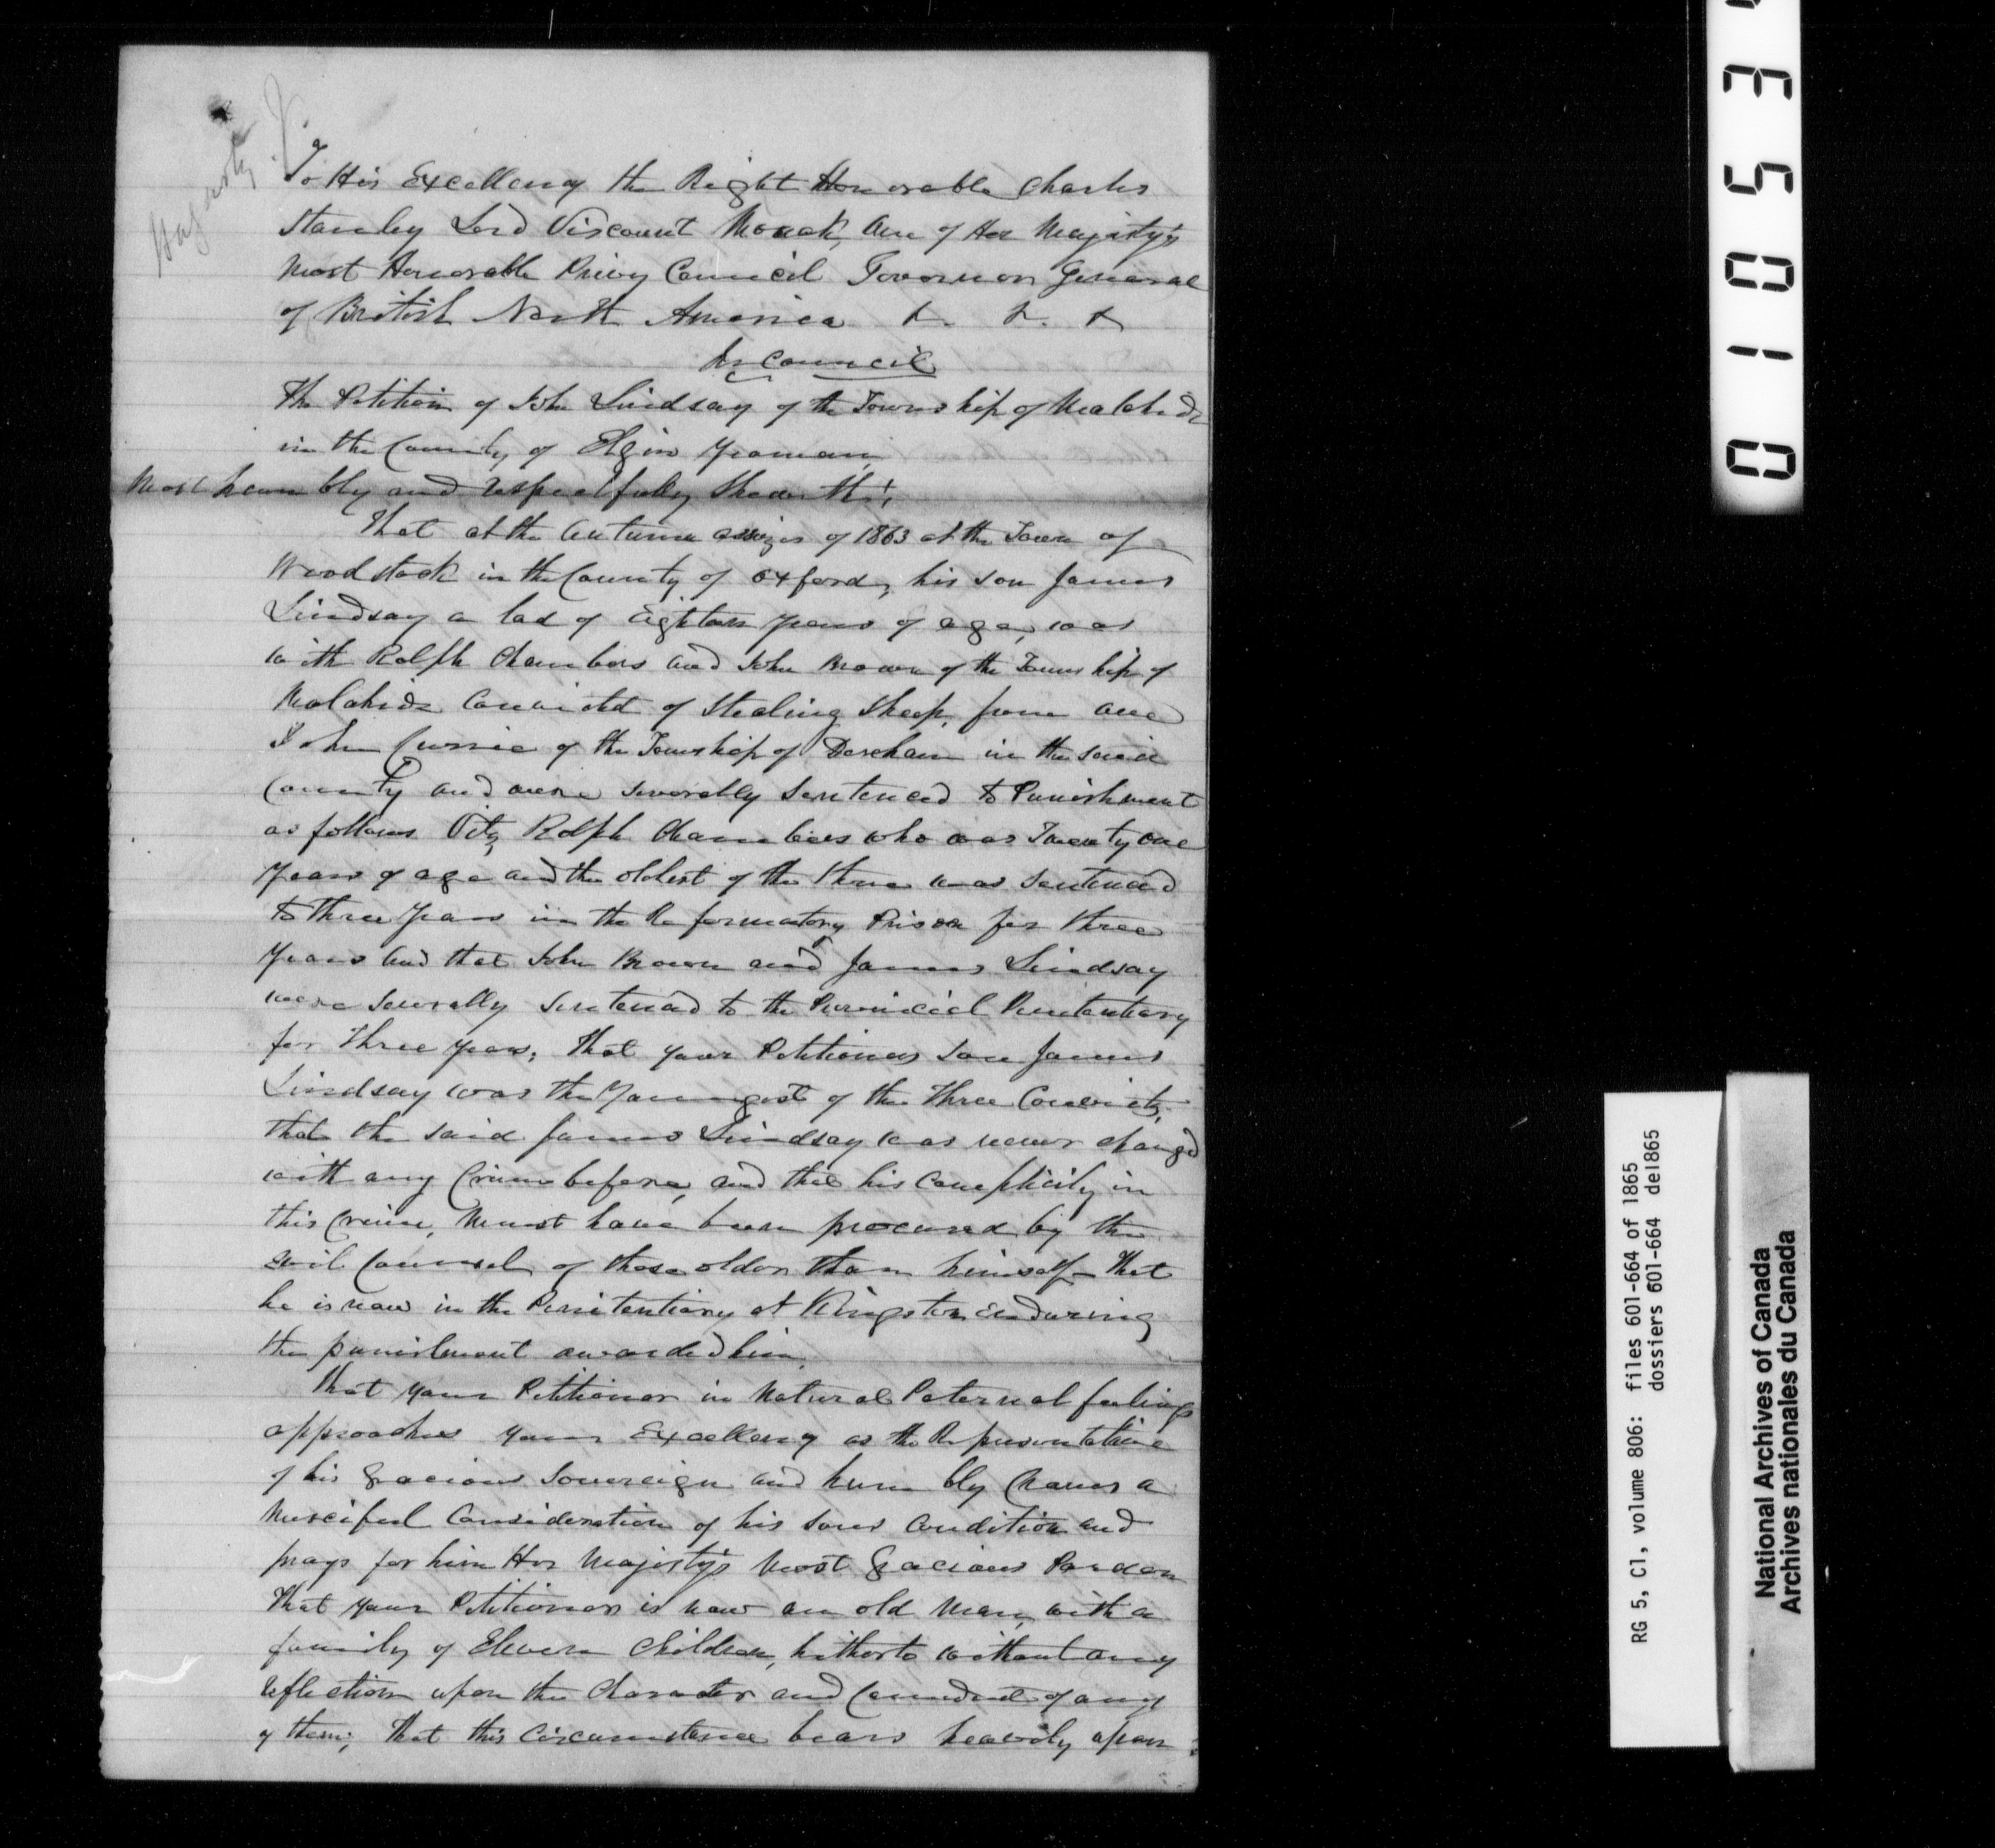 Hagarty J.
To His Excellency the Right Honorable Charles
Stanley Lord Viscount Monck, one of Her Majesty's
Most Honorable Privy Council Governor General
of British North America &. &. &
In Council
The Petition of John Lindsay of the Township of Malahide
in the County of Elgin Yeoman,
Most humbly and respectfully Sheweth;
That at the Autumn assizes of 1863 at the Town of
Woodstock in the County of Oxford, his son James
Lindsay a lad of Eighteen years of age, was
with Rolph Chambers and John Brown of the Township of
Malahide Convicted of Stealing Sheep, from one
John Currie of the Township of Dereham in the said
County and were severally Sentenced to Punishment
as follows Vitz, Rolph Chambers who was Twenty one
Years of age and the oldest of the three was sentenced
to three years in the Reformatory Prison for three
Years and that John Brown and James Lindsay
were severally sentenced to the Provincial Penitentiary
for Three years; That your Petitioners son James
Lindsay was the Youngest of the Three Convicts,
that the said James Lindsay was never charged
with any Crime before, and that his complicity in
this Crime, Must have been procured by the
evil Counsel of those older than himself - That
he is now in the Penitentiary at Kingston enduring
the punishment awarded him.
That your Petitioner in Natural Paternal feelings
approaches your Excellency as the Representative
of his Gracious Sovereign and humbly Craves a
Merciful Consideration of his sons Condition and
prays for him Her Majesty's Most Gracious Pardon
That your Petitioner is now an old Man, with a
family of Eleven Children, hitherto without any
reflection upon the Character and Conduct of any
of them; That this Circumstance bears heavily upon
01053
RG 5, C1, volume 806: files 601-664 of 1865
dossiers 601-664 de1865
National Archives of Canada
Archives nationales du Canada